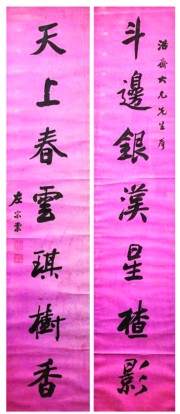 浩齋大兄先生屬
斗邊銀漢星樝影
天上春雲琪樹香
左宗棠